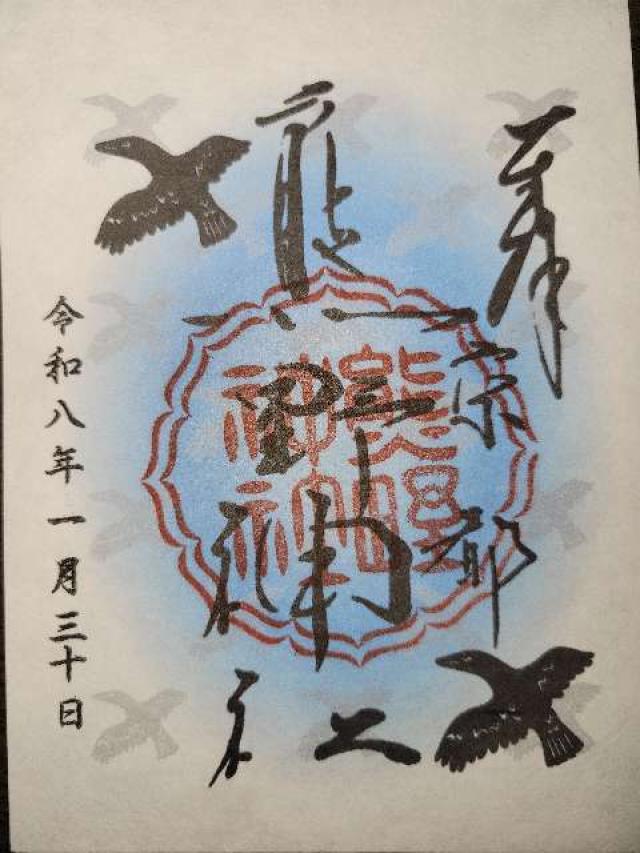 奉拝
京都
熊野神社
熊野
神社
令和八年一月三十日